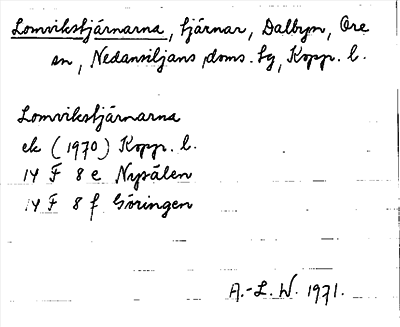 Lomvikstjärnarna, tjärnar, Dalbyn, Ore
sn, Nedansiljans doms. tg, Kopp. l.
Lomvikstjärnarna
ek (1970) Kopp. l.
14 F 8 e Nysälen
14 F 8 f Göringen
A.-L. W. 1971.